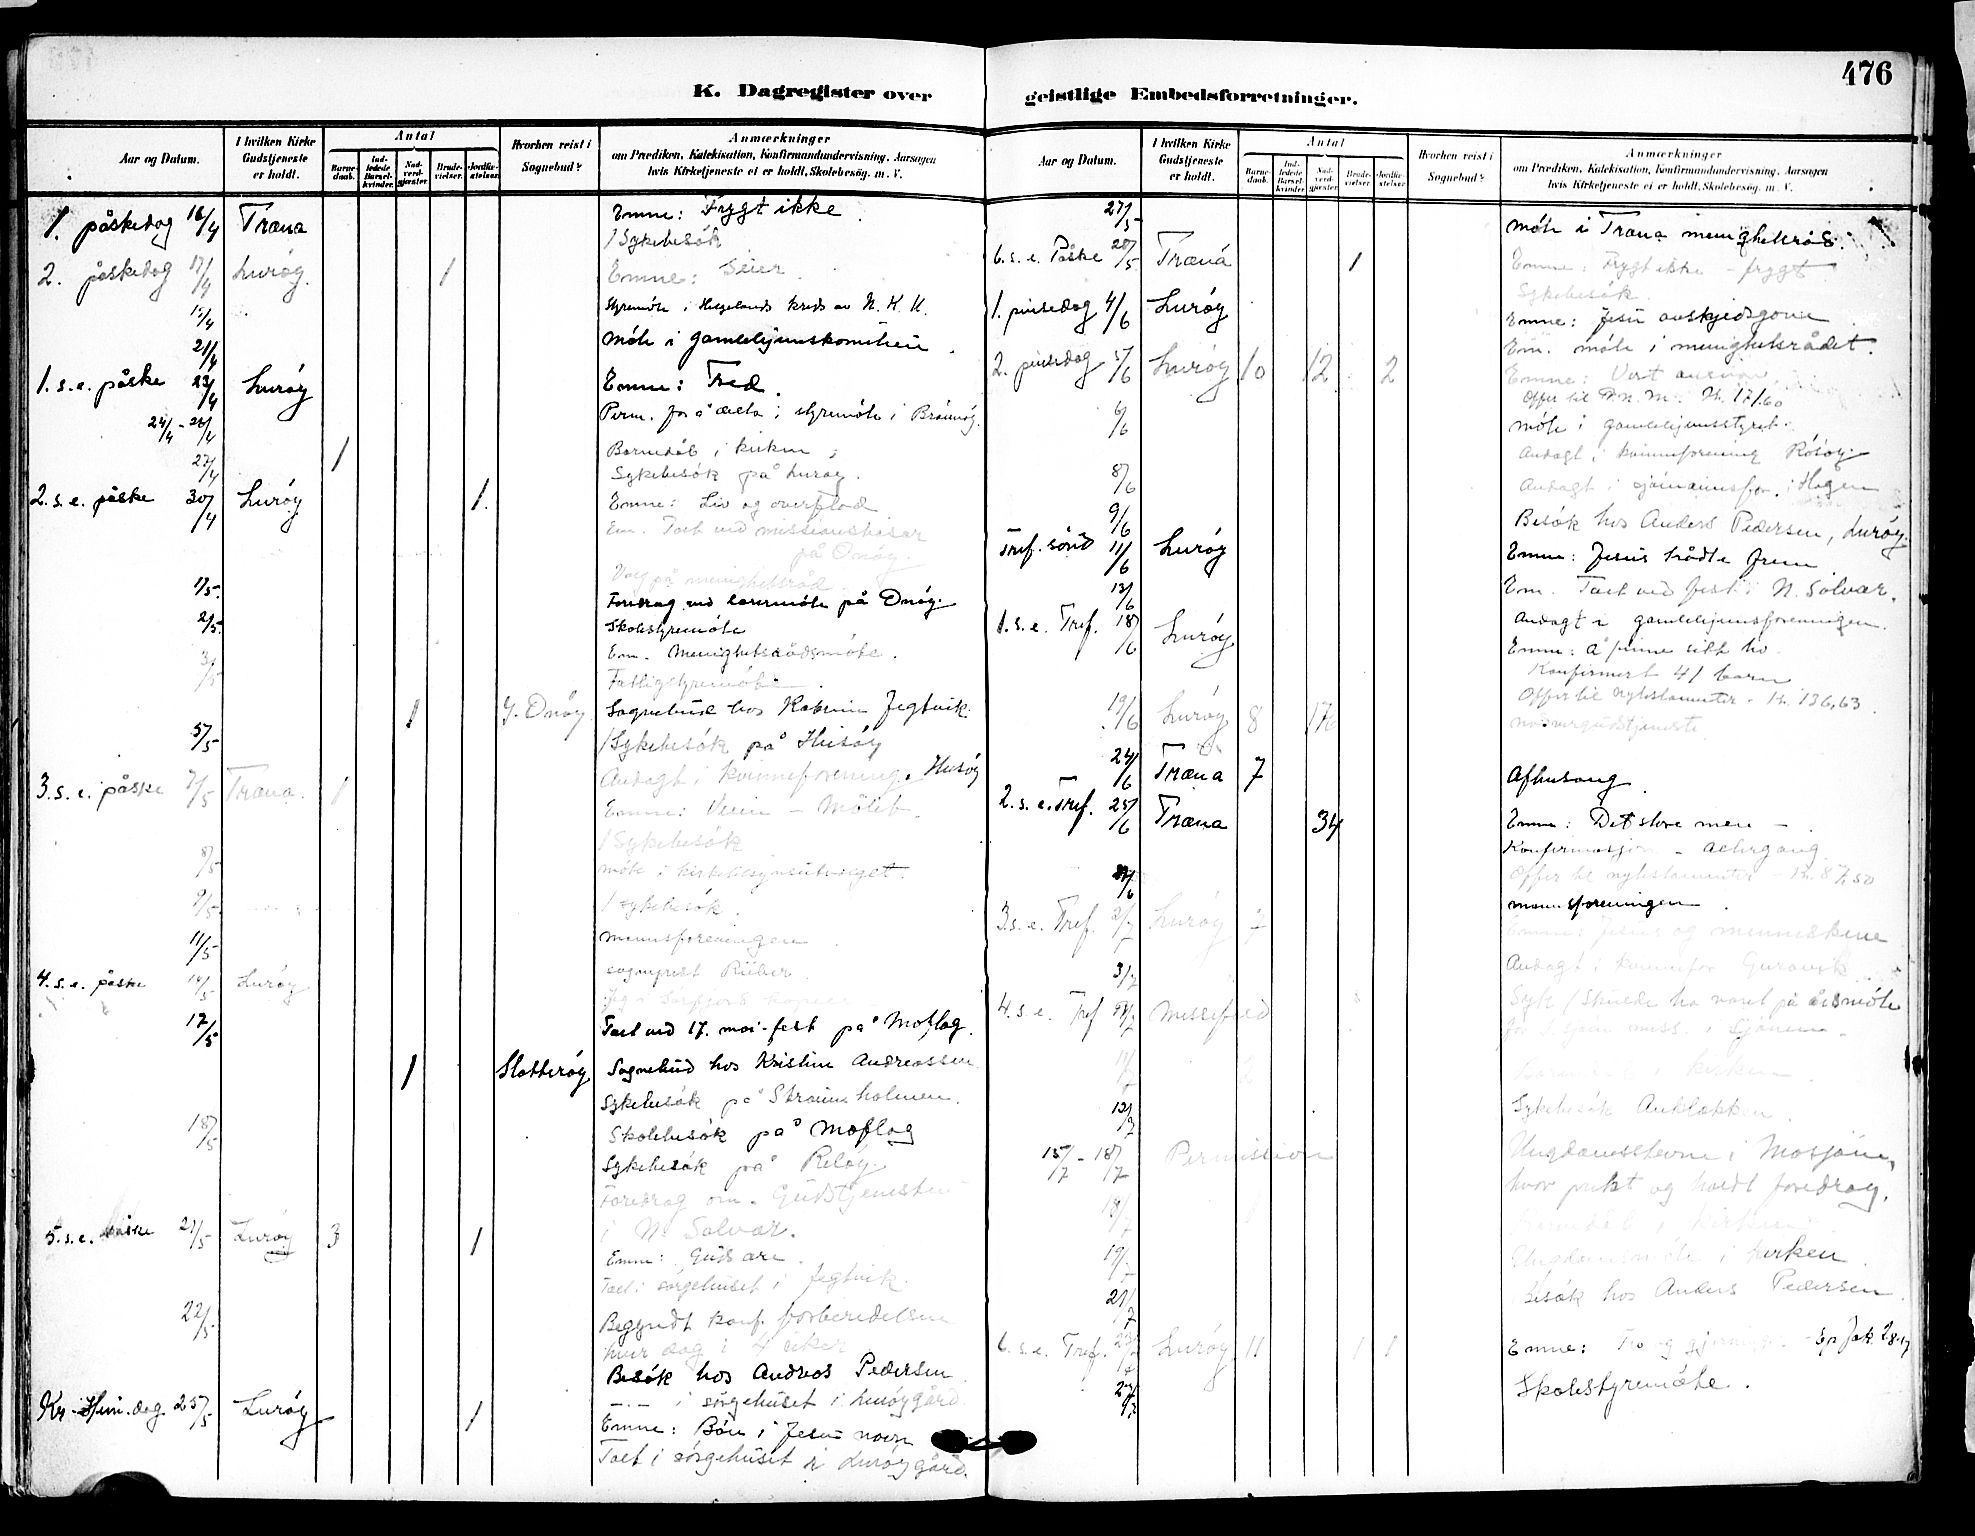 476
K. Dagregister over geistlige Embedsforretninger.
Aar og Datum.
I hvilken Kirke Gudstjeneste er holdt.
Antal
Barnedaab.
Indledede Barselkvinder.
Nadverdgjæster.
Brudevielser.
Jordfæstelser.
Hvorhen reist i Sognebud?
Anmærkninger
om Prædiken, Katekisation, Konfirmandundervisning, Aarsagen
hvis Kirketjeneste ei er holdt, Skolebesøg. m. V.
1. påskedag 16/4 Træna Emne: Frygt ikke.
1 Sykebesök
2. påskedag 17/4 Luröy. 1 Emne: Seier.
19/4 Styremöte i Helgelands kreds av N. K. U.
21/4 Möte i gamlehjemskomiteen.
1. s. e. påske 23/4 Luröy Emne: Fred.
24/4 - 26/4 Perm. for å delta i styremöte i Brönnöy.
27/4 1 Barnedåb i kirken;
Sykebesök på Luröy.
2. s. e. påske 30/4 Luröy 1. Emne: Liv og overflod
Em. Talt ved missionsbasar
på Onöy
Valg på menighetsråd
1/5. Foredrag ved lærermöte på Onöy.
2/5. Skolestyremöte
Em. Menighetsrådsmöte.
3/5 Fattigstyremöte.
1 Y. Onöy Sognebud hos Katrine Jegtvik.
5/5 1 Sykebesök på Husöy
Andagt i kvinneforening, Husöy
3. s. e. påske 7/5 Træna. 1 Emne: Veien - Målet.
1 Sykebesök
8/5 möte i kirketilsynsutvalget.
9/5 1 sykebesök.
11/5 mannsforeningen.
4. s. e. påske 14/5 Luröy sogneprest Riiber.
17/5 Talt ved 17. mai-fest på Moflag.
1 Slotteröy Sognebud hos Kristine Andreassen
Sykebesök på Straumholmen.
18/5 Skolebesök på Moflag
Sykebesök på Relöy.
Foredrag om. Gudstjenesten
i N. Solvær.
5. s. e. påske 21/5 Luröy 3 1 Emne: Guds ære.
Talt i sörgehuset i Jegtvik.
22/5 Begyndt konf. forberedelsen
hver dag i 4 uker
Besök hos Andreas Pedersen
-.- i sörgehuset i Luröygård
Kr. Him. dag 25/5 Luröy 1 Emne: Bön i Jesu navn
Talt i sörgehuset i Luröygård.
Aar og Datum.
I hvilken Kirke Gudstjeneste er holdt.
Antal
Barnedaab.
Indledede Barselkvinder.
Nadverdgjæster.
Brudevielser.
Jordfæstelser.
Hvorhen reist i Sognebud?
Anmærkninger
om Prædiken, Katekisation, Konfirmandundervisning, Aarsagen
hvis Kirketjeneste ei er holdt, Skolebesøg. m. V.
27/5 möte i Træna menighetsråd.
6. s. e. Påske 28/5 Træna 1 Emne: Frygt ikke - frygt
Sykebesök.
1. pinsedag 4/6 Luröy Emne: Jesu avskjedsgave
Em. möte i menighetsrådet.
2. pinsedag 5/6 Luröy 10 12 2 Emne: Vort ansvar.
Offer til
6/6 möte i gamlehjemsstyret.
Andagt i kvinneforening Rösöy.
8/6 Andagt i sjömannsfor. i Hagen
9/6 Besök hos Anders Pedersen, Luröy.
Tref. sönd 11/6 Luröy Emne: Jesus trådte frem
Em. Talt ved fest i N. Solvær.
13/6 Andagt i gamlehjemsforeningen.
1. s. e. Tref. 18/6 Luröy Emne: Å finne sitt liv.
Konfirmert 41 barn
Offer til nytestamenter - kr. 136,63.
19/6 Luröy 8 176 nadvergudstjeneste
24/6 Træna 7 Aftnsang.
2. s. e. Tref. 25/6 Træna 34 Emne: Det store men -.
Konfirmasjon - altergang
Offer til nytestamenter - kr. 87,50
mannsforeningen.
3. s. e. Tref. 2/7 Luröy 7 Emne: Jesus og menneskene
3/7 Andagt i kvinnefor Guravik
4. s. e. Tref 9/7 messefald Syk / Skulde ha været på årsmöte
for sjöm. miss. i
11/7 2 Barnedåb i kirken.
12/7 Sykebesök Anklakken.
15/7 - 18/7 Permission Ungdomsstevne i Mosjöen,
hvor prekt og holdt foredrag.
18/7 1 Barnedåb i kirken.
19/7 Ungdomsmöte i kirken.
21/7 Besök hos Anders Pedersen
6. s. e. Tref. 23/7 Luröy 11 1 1 Emne: Tro og gjerning. - Ep Jak 2
Skolestyremöte.